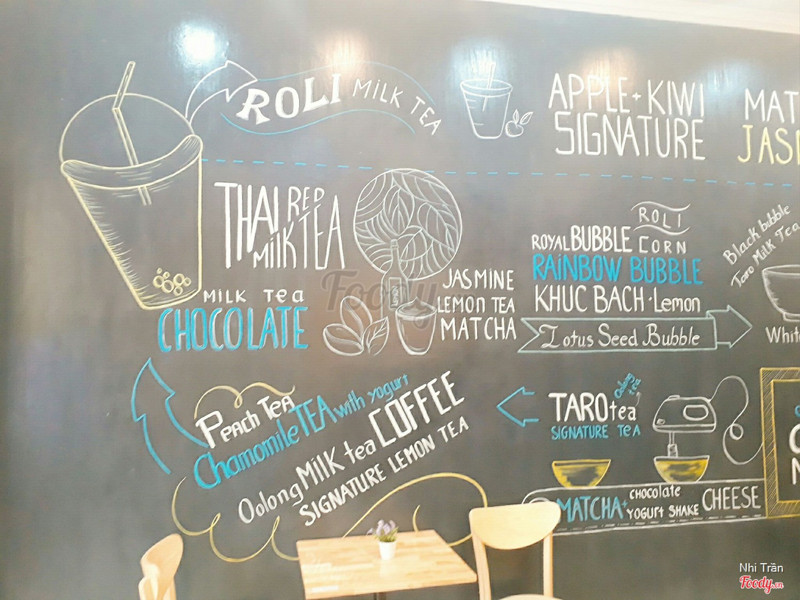 ROLI MILK TEA
APPLE + KIWI
SIGNATURE
MAT
JAS
THAI RED
MILK TEA
MILK TEA
CHOCOLATE
JASMINE
LEMON TEA
MATCHA
ROLI
ROYAL BUBBLE CORN
RAINBOW BUBBLE
KHUC BACH · Lemon
Lotus Seed Bubble
Black bubble
Taro Milk Tea
White
PEACH TEA
Chamomile TEA with yogurt
Oolong MILK tea COFFEE
SIGNATURE LEMON TEA
TARO tea
Oolong tea
SIGNATURE TEA
MATCHA + CHOCOLATE
YOGURT SHAKE CHEESE
Foody
Nhi Trần
Foody.vn